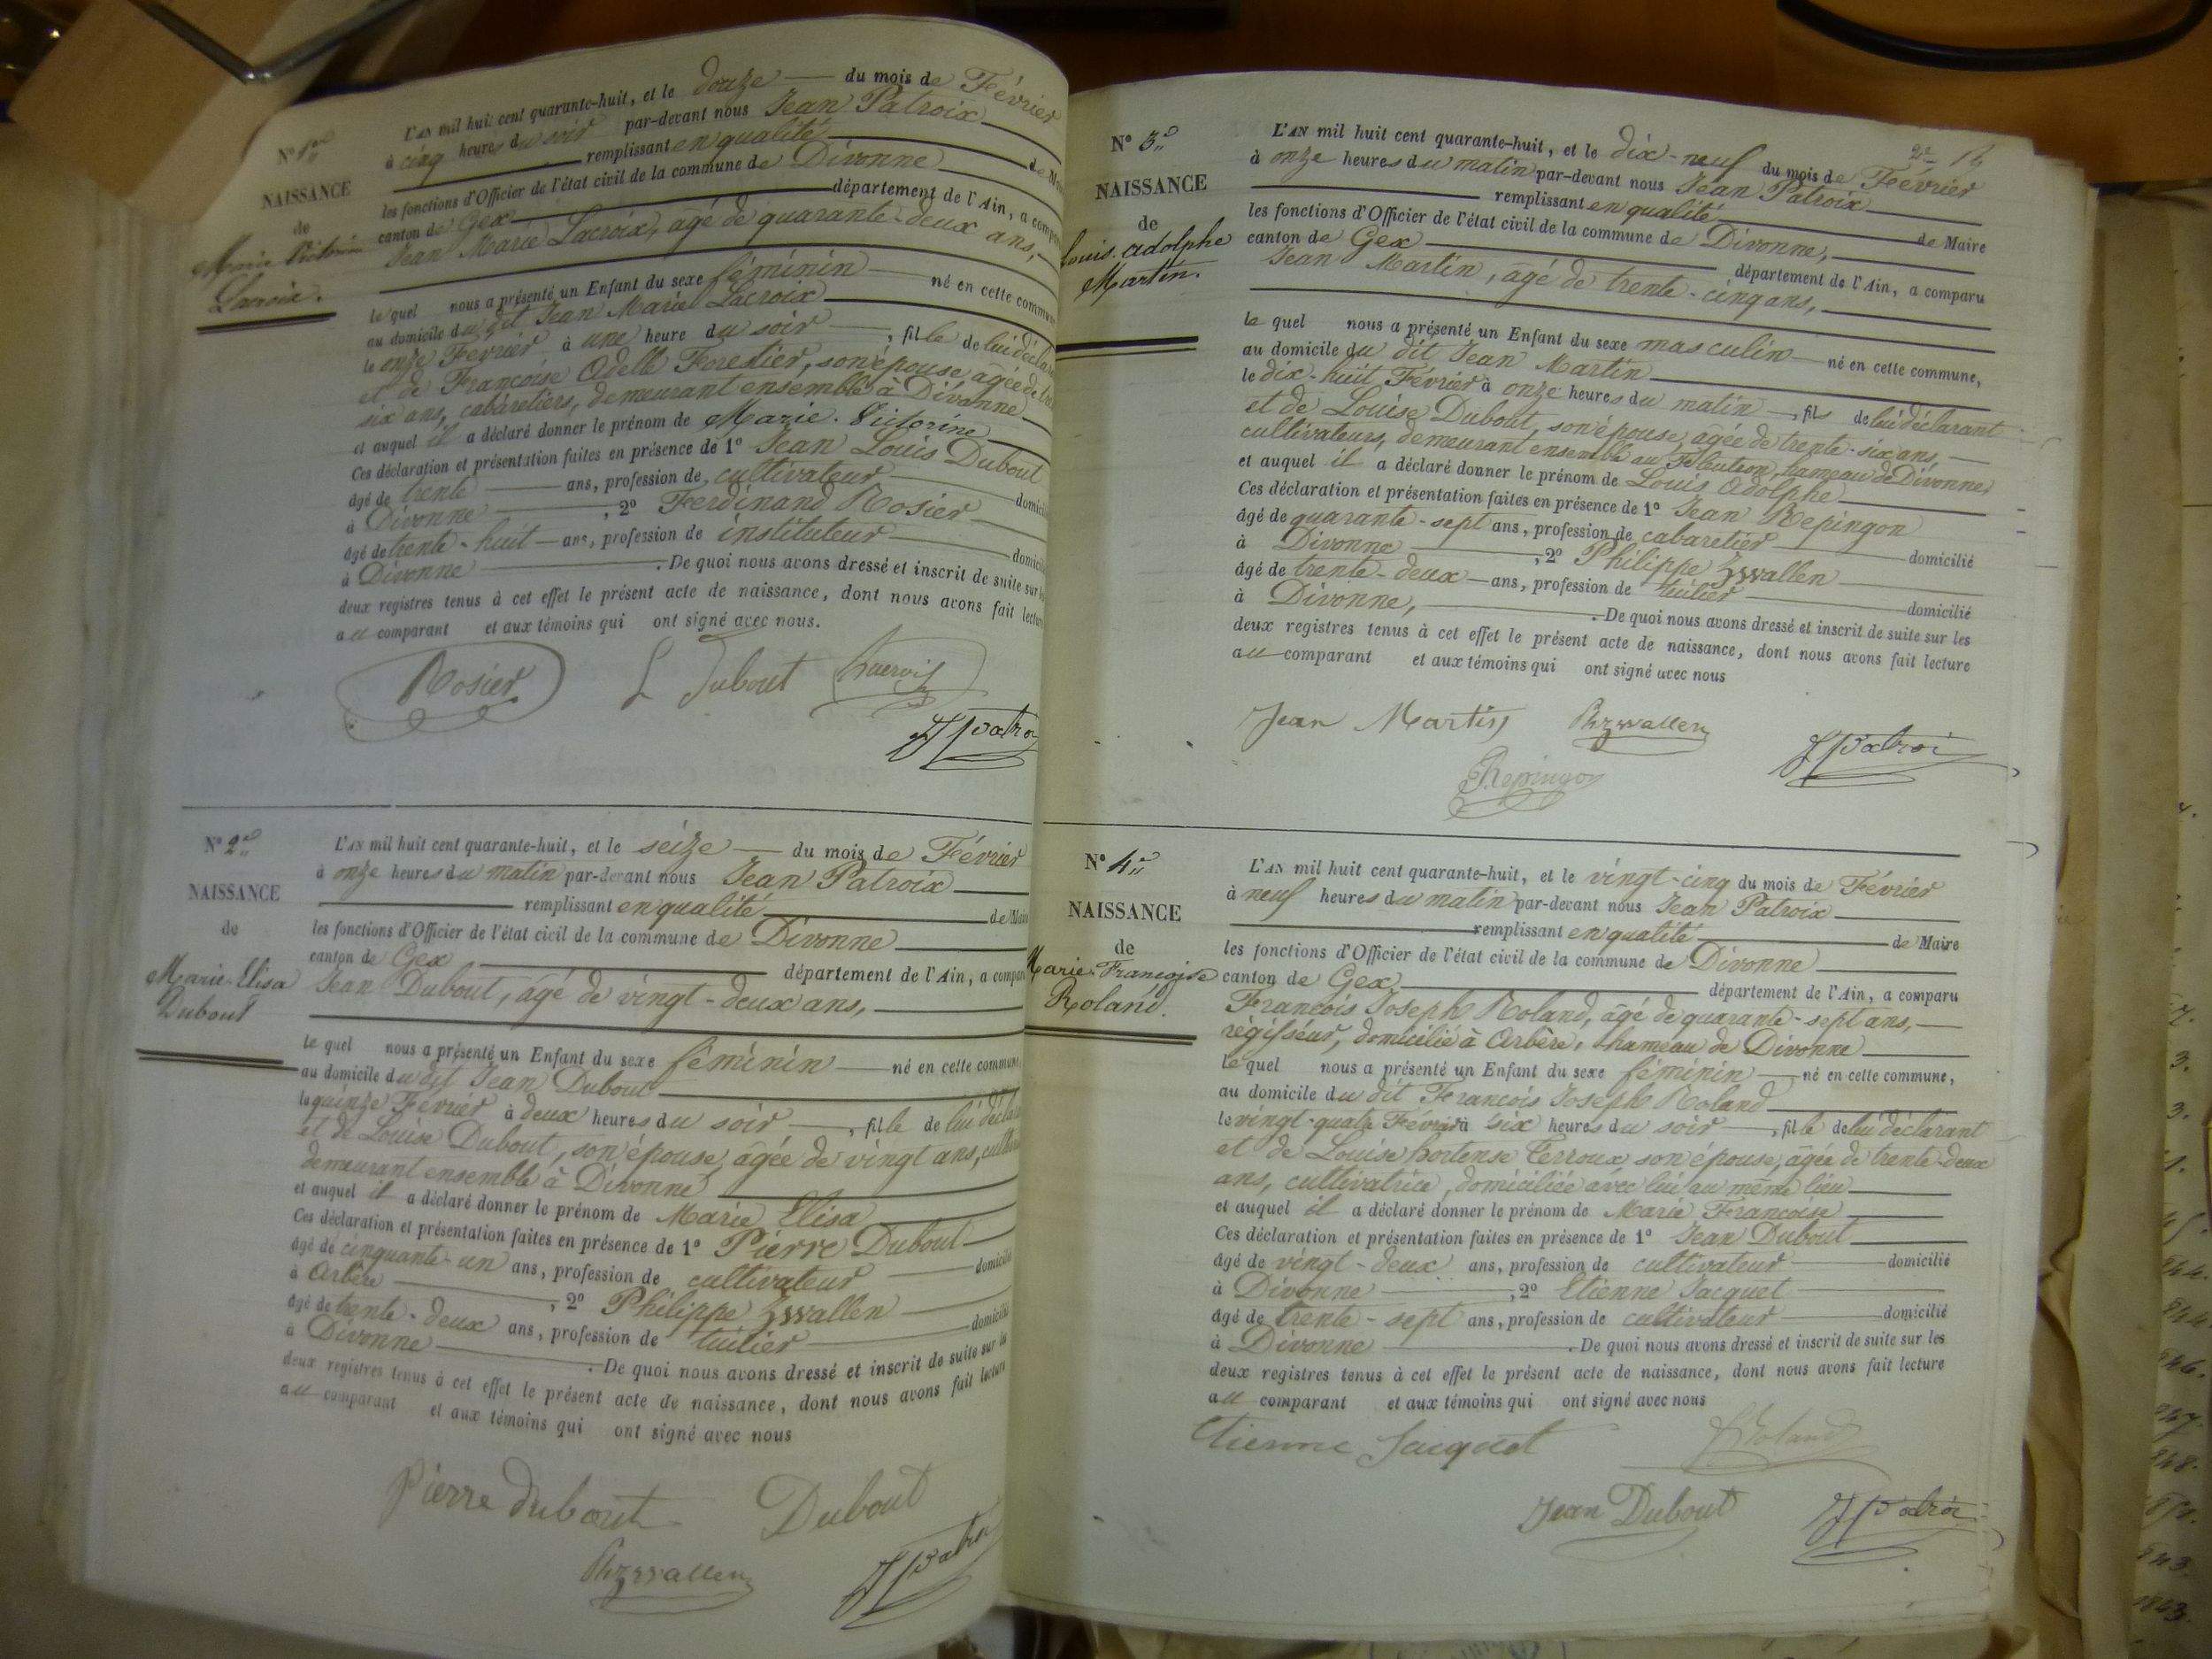 N° 1er
NAISSANCE
de
Marie Victorine
Lacroix.
L'AN mil huit cent quarante-huit, et le douze du mois de Février
à cinq heures du soir par-devant nous Jean Patroix
remplissant en qualité de
les fonctions d'Officier de l'état civil de la commune de Divonne
canton de Gex département de l'Ain, a
Jean Marie Lacroix, agé de quarante-deux ans,
le quel nous a présenté un Enfant du sexe féminin né en cette
au domicile du dit Jean Marie Lacroix
le onze Février à une heure du soir, fille de lui
et de Françoise Adelle Forestier, son épouse agée de
six ans, cabaretiers, demeurant ensemble à Divonne
et auquel il a déclaré donner le prénom de Marie Victorine
Ces déclaration et présentation faites en présence de 1° Jean Louis Dubout
âgé de trente ans, profession de cultivateur
à Divonne, 2° Ferdinand Rosier
âgé de trente-huit ans, profession de instituteur
à Divonne. De quoi nous avons dressé et inscrit de suite sur
deux registres tenus à cet effet le présent acte de naissance, dont nous avons fait
au comparant et aux témoins qui ont signé avec nous.
Rosier L Dubout
N° 2
NAISSANCE
de
Marie Elisa
Dubout
L'AN mil huit cent quarante-huit, et le seize du mois de Février
à onze heures du matin par-devant nous Jean Patroix
remplissant en qualité de
les fonctions d'Officier de l'état civil de la commune de Divonne
canton de Gex département de l'Ain, a
Jean Dubout, agé de vingt-deux ans,
le quel nous a présenté un Enfant du sexe féminin né en cette commune,
au domicile du dit Jean Dubout
le quinze Février à deux heures du soir, fille de lui
et de Louise Dubout, son épouse, agée de vingt ans,
demeurant ensemble à Divonne
et auquel il a déclaré donner le prénom de Marie Elisa
Ces déclaration et présentation faites en présence de 1° Pierre Dubout
âgé de cinquante-un ans, profession de cultivateur
à Arbère, 2° Philippe Zwallen
âgé de trente-deux ans, profession de tuilier
à Divonne. De quoi nous avons dressé et inscrit de suite sur les
deux registres tenus à cet effet le présent acte de naissance, dont nous avons fait lecture
au comparant et aux témoins qui ont signé avec nous
Pierre dubout Dubout
Phzwallen
2e 16
N° 3
NAISSANCE
de
Louis Adolphe
Martin.
L'AN mil huit cent quarante-huit, et le dix-neuf du mois de Février
à onze heures du matin par-devant nous Jean Patroix
remplissant en qualité de Maire
les fonctions d'Officier de l'état civil de la commune de Divonne,
canton de Gex département de l'Ain, a comparu
Jean Martin, agé de trente-cinq ans,
le quel nous a présenté un Enfant du sexe masculin né en cette commune,
au domicile du dit Jean Martin
le dix-huit Février à onze heures du matin, fils de lui déclarant
et de Louise Dubout, son épouse, agée de trente-six ans,
cultivateurs, demeurant ensemble au hameau de Divonne,
et auquel il a déclaré donner le prénom de Louis Adolphe
Ces déclaration et présentation faites en présence de 1° Jean Repingon
âgé de quarante-sept ans, profession de cabaretier domicilié
à Divonne, 2° Philippe Zwallen
âgé de trente-deux ans, profession de tuilier domicilié
à Divonne,. De quoi nous avons dressé et inscrit de suite sur les
deux registres tenus à cet effet le présent acte de naissance, dont nous avons fait lecture
au comparant et aux témoins qui ont signé avec nous
Jean Martin Phzwallen JPatroi
Repingon
N° 4
NAISSANCE
de
Marie Françoise
Roland.
L'AN mil huit cent quarante-huit, et le vingt-cinq du mois de Février
à neuf heures du matin par-devant nous Jean Patroix
remplissant en qualité de Maire
les fonctions d'Officier de l'état civil de la commune de Divonne
canton de Gex département de l'Ain, a comparu
François Joseph Roland, agé de quarante-sept ans,
régisseur, domicilié à Arbère, hameau de Divonne
le quel nous a présenté un Enfant du sexe féminin né en cette commune,
au domicile du dit François Joseph Roland
le vingt-quatre Février à six heures du soir, fille de lui déclarant
et de Louise hortense Terroux son épouse, agée de trente-deux
ans, cultivatrice, domiciliée avec lui au même lieu
et auquel il a déclaré donner le prénom de Marie Françoise
Ces déclaration et présentation faites en présence de 1° Jean Dubout
âgé de vingt-deux ans, profession de cultivateur domicilié
à Divonne, 2° Etienne Jacquet
âgé de trente-sept ans, profession de cultivateur domicilié
à Divonne. De quoi nous avons dressé et inscrit de suite sur les
deux registres tenus à cet effet le présent acte de naissance, dont nous avons fait lecture
au comparant et aux témoins qui ont signé avec nous
Etienne Jacquet Roland
Jean Dubout JPatroi